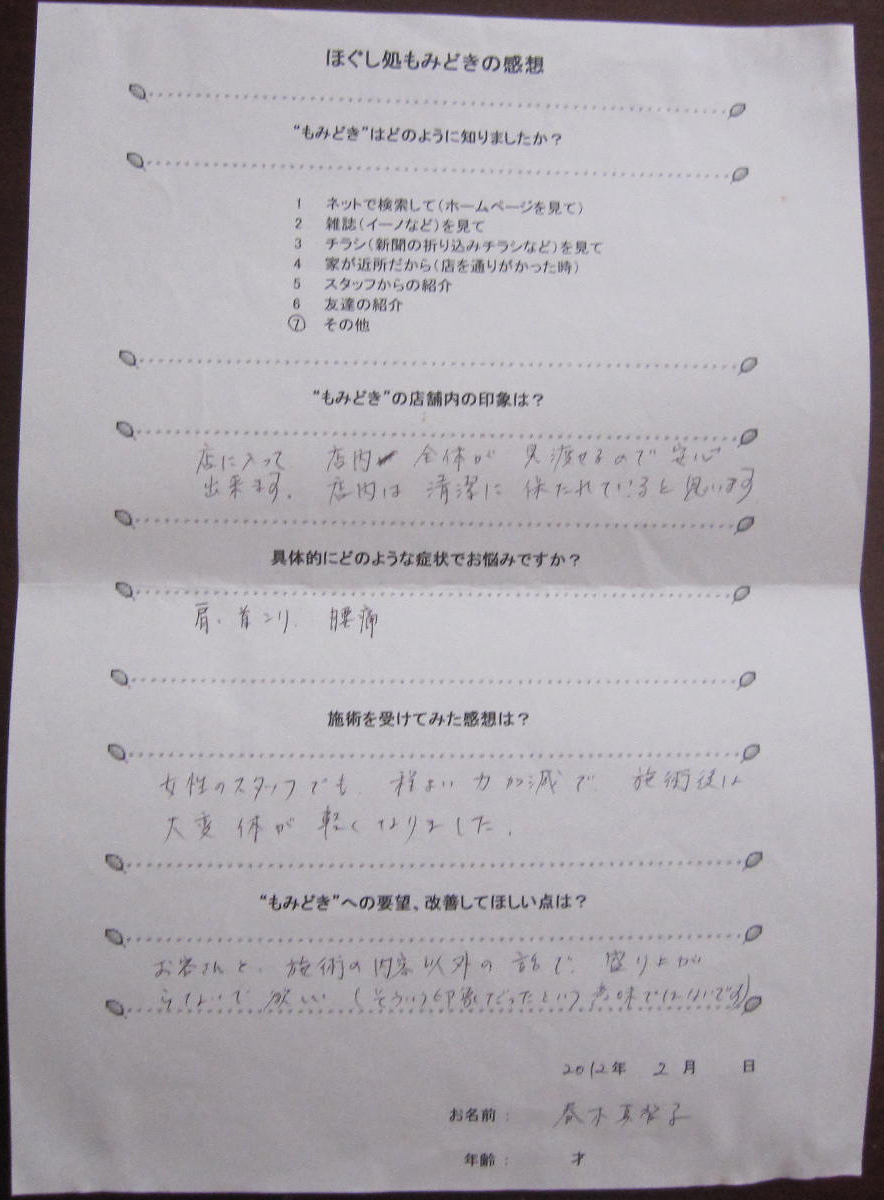 ほぐし処もみどきの感想
“もみどき”はどのように知りましたか？
1 ネットで検索して（ホームページを見て）
2 雑誌（イーノなど）を見て
3 チラシ（新聞の折り込みチラシなど）を見て
4 家が近所だから（店を通りがかった時）
5 スタッフからの紹介
6 友達の紹介
⑦ その他
“もみどき”の店舗内の印象は？
店に入って 店内 全体が 見渡せるので 安心
出来ます。 店内は 清潔に 保たれていると思います
具体的にどのような症状でお悩みですか？
肩、首コリ、腰痛
施術を受けてみた感想は？
女性のスタッフでも、程よい力加減で、施術後は
大変 体が 軽くなりました。
“もみどき”への要望、改善してほしい点は？
お客さんと、施術の内容以外の話で、盛り上が
らないで欲しい（そういう印象だったという意味ではないです）
2012年 2月 日
お名前： 春木真智子
年齢： 才